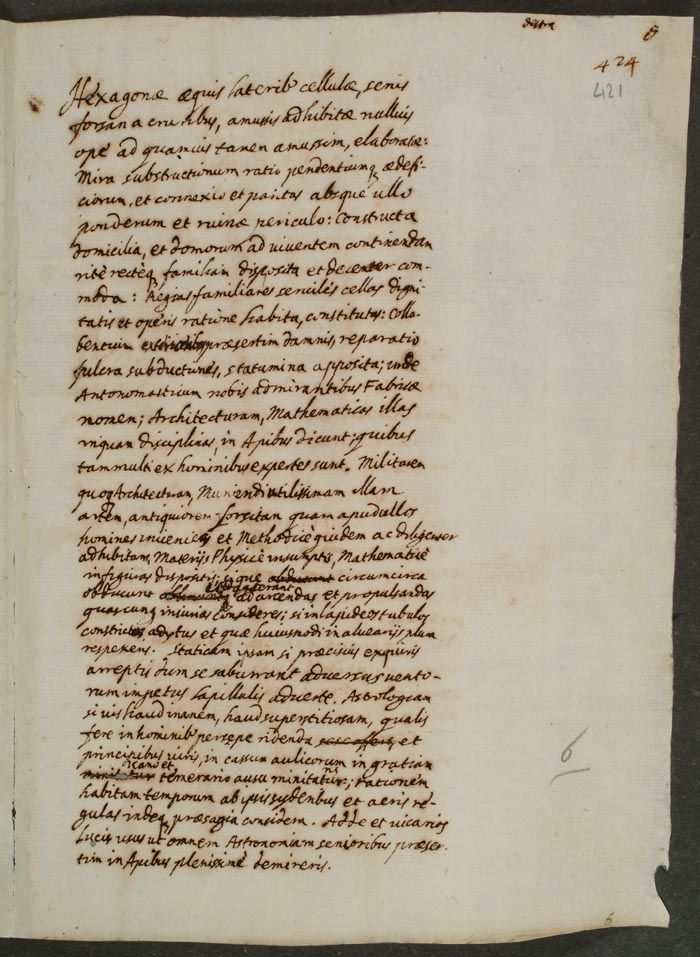 dextra
6
424
421
Hexagonæ æquis laterib' cellulæ, senis
forsan a cruribus, amussis adhibitæ nullius
ope ad quamuis tamen amussim, elaboratæ:
Mira substructionum ratio pendentiumq ædefi-
ciorum, et connexio et paritas absque ullo
ponderum et ruinæ periculo: Constructa
domicilia, et domorum ad viuentem continendam
ritè rectèq familiam disposita et decenter com-
moda: Regius familiares seniles cellas digni
tatis et operis ratione habita, constitutas: Colla-
bentium præsertim damnis, reparatio
fulcra subductiones, statumina apposita; inde
Antonomasticum nobis admirantibus Fabricæ
nomen; Architecturam, Mathematicas illas
inquam disciplinas, in Apibus dicunt; quibus
tam multi ex hominibus expertes sunt. Militarem
quoq Architecturam, Muniendi utilissimam illam
artem, antiquiorem forsitan quam apud illos
homines inuenies et Methodicè quidem ac diligenter
adhibitam, Materijs Physicè insumptis, Mathematicè
in figuras dispositis; sique circumcirca
obducunt ad arcendas et propulsandas
quascunq iniurias consideres; si in lapideos tubulos
constrictos adytus et quæ huiusmodi in aluearijs plum
respexeris. Staticam ipsam si præcisius exquiris
arreptis dum se saburrant aduersus uento-
rum impetus lapillulis aduerte. Astrologiam
si uis haud inanem, haud superstitiosam, qualis
fere in hominib' persepe ridenda et
principibus uiris, in cassum aulicorum in gratiam
temerario ausu minitatur; rationem
habitam temporum ab ipsis syderibus et aeris re-
gulas indeq præsagia considera. Adde et uicarios
Lucis usus ut omnem Astronomiam senioribus præser-
tim in Apibus plenissimè demireris.
6
6